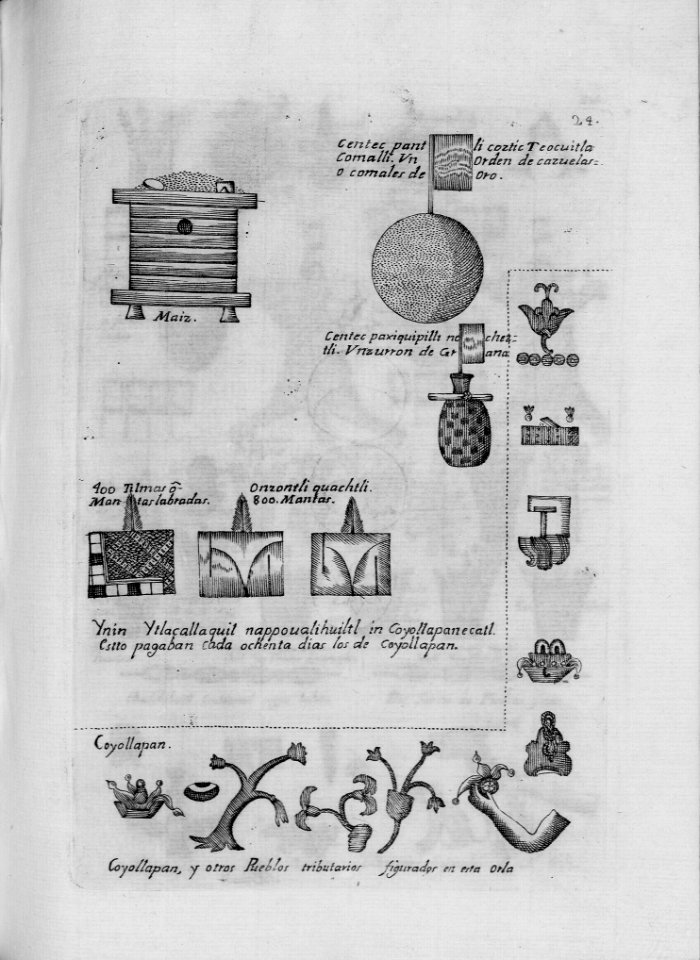 24.
Centec pantli coztic Teocuitla
Comalli. Vn Orden de cazuelas
o comales de Oro.
Maiz.
Centec paxiquipilli nochez
tli. Vnzurron de Grana
400 Tilmas q̃
Mantas labradas.
Onzontli quachtli.
800. Mantas.
Ynin Ytlacallaquil nappoualihuiltl in Coyollapanecatl.
Estto pagaban cada ochenta dias los de Coyollapan.
Coyollapan.
Coyollapan, y otros Pueblos tributarios figurados en esta Orla